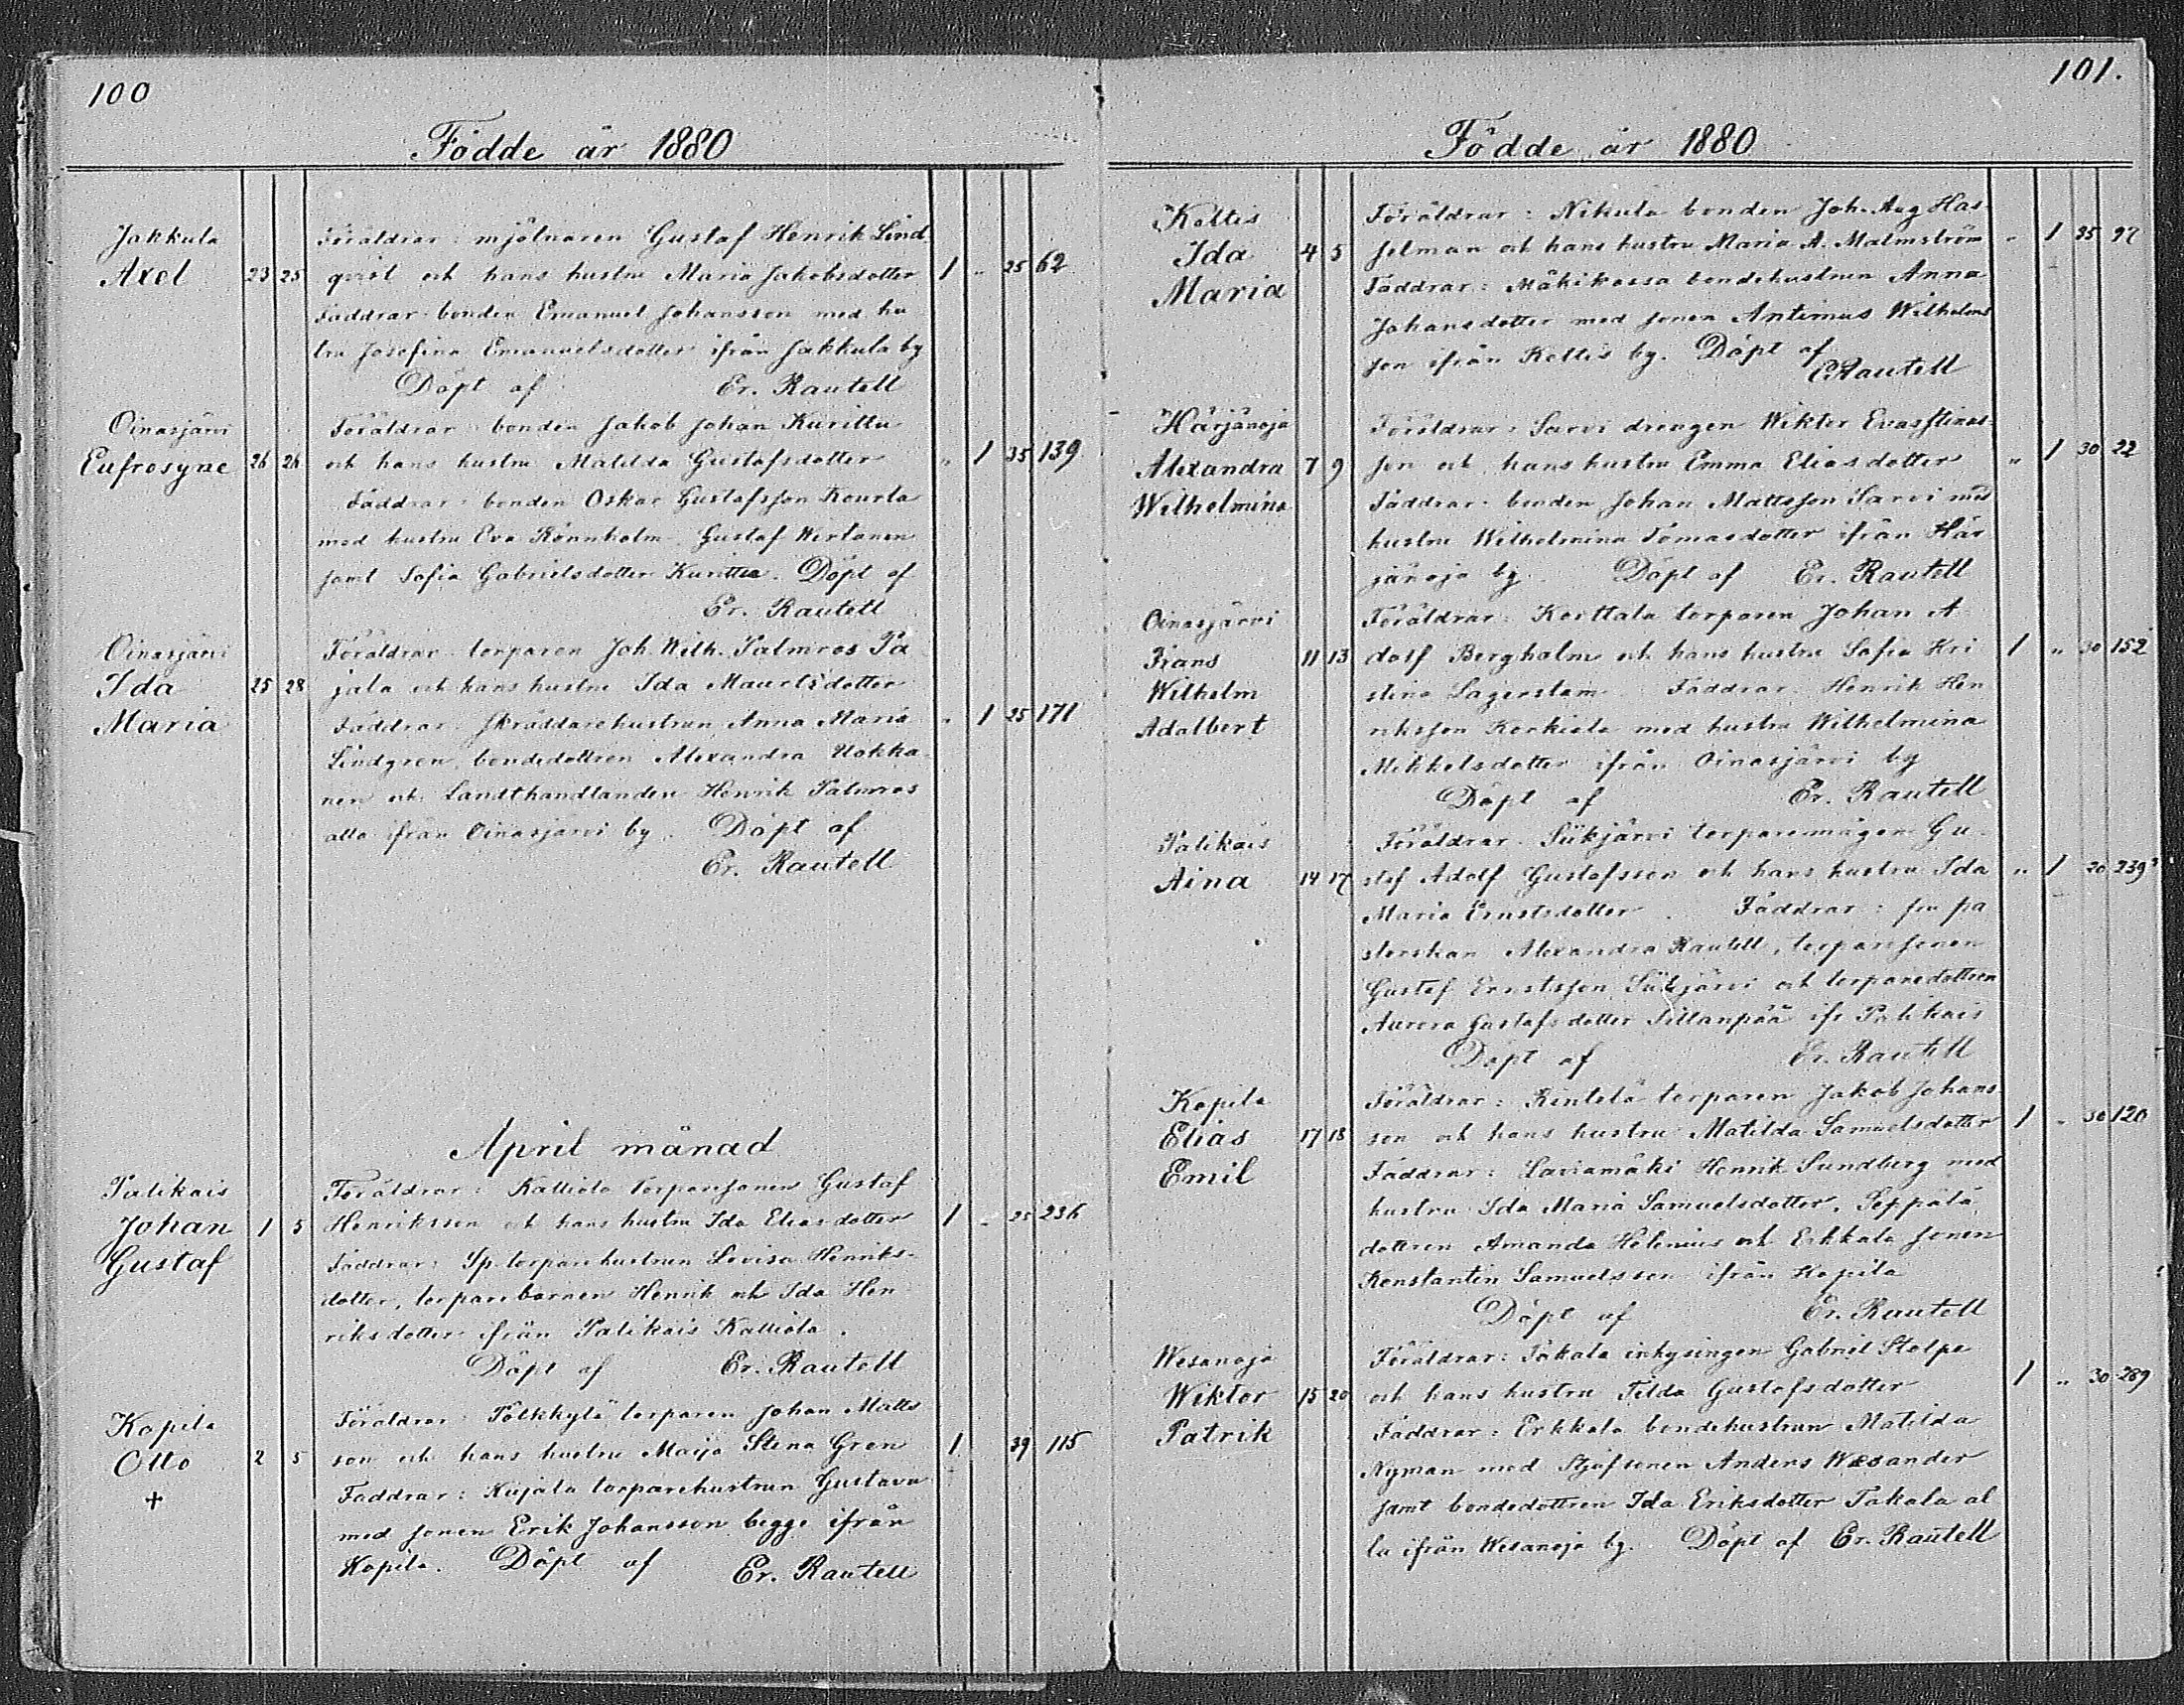 100
Födde år 1880
Jakkula
Axel 23 25
Föräldrar: mjölnaren Gustaf Henrik Lind
qvist och hans hustru Maria Jakobsdotter 1 „ 25 62
Faddrar: bonden Emanuel Johansson med hu
tru Josefina Emanuelsdotter ifrån Jakkula by
Döpt af Er. Rautell
Oinasjärvi
Eufrosyne 26 26
Föräldrar: bonden Jakob Johan Kurittu
och hans hustru Matilda Gustafsdotter „ 1 35 139
Faddrar: bonden Oskar Gustafsson Kourla
med hustru Eva Rönnholm, Gustaf Wirtanen
samt Sofia Gabrielsdotter Kurittu. Döpt af
Er. Rautell
Oinasjärvi
Ida 25 28
Maria
Föräldrar: torparen Joh. Wilh. Palmros Pa
jala och hans hustru Ida Mauritsdotter
Faddrar: Skräddarehustrun Anna Maria „ 1 25 171
Lindgren, bondedottren Alexandra Uokka
nen och Landthandlanden Henrik Palmros
alla ifrån Oinasjärvi by. Döpt af
Er. Rautell
April månad
Palikais
Johan 1 5
Gustaf
Föräldrar: Kalliola torparsonen Gustaf
Henriksson och hans hustru Ida Eliasdotter 1 „ 25 236
Faddrar: Sp. torparehustrun Lovisa Henriks-
dotter, torparebarnen Henrik och Ida Hen
riksdotter ifrån Palikais Kalliola.
Döpt af Er. Rautell
Kopila
Otto 2 5
+
Föräldrar: Pölkkylä torparen Johan Matts
son och hans hustru Maija Stina Gren 1 39 115
Faddrar: Kujala torparehustrun Gustava
med sonen Erik Johansson begge ifrån
Kopila. Döpt af Er. Rautell
101.
Födde år 1880
Keltis
Ida 4 5
Maria
Föräldrar: Nikula bonden Joh. Aug Has
selman och hans hustru Maria A. Malmström „ 1 35 97
Faddrar: Mäkikossa bondehustrun Anna
Johansdotter med sonen Antimus Wilhelms
son ifrån Keltis by. Döpt af
E. Rautell
Härjänoja
Alexandra 7 9
Wilhelmina
Föräldrar: Sarvi drengen Wiktor Evasstinas-
son och hans hustru Emma Eliasdotter „ 1 30 22
Faddrar: bonden Johan Mattsson Sarvi med
hustru Wilhelmina Tomasdotter ifrån Här
jänoja by. Döpt af Er. Rautell
Oinasjärvi
Frans 11 13
Wilhelm
Adalbert
Föräldrar: Korttala torparen Johan A
dolf Bergholm och hans hustru Sofia Kri 1 „ 30 152
stina Lagerstam. Faddrar: Henrik Hen
riksson Korkiala med hustru Wilhelmina
Mikkelsdotter ifrån Oinasjärvi by
Döpt af Er. Rautell
Palikais
Aina 14 17
Föräldrar: Siikjärvi torparemågen Gu-
staf Adolf Gustafsson och hans hustru Ida „ 1 20 239
Maria Ernstsdotter. Faddrar: fru pa
storskan Alexandra Rautell, torparesonen
Gustaf Ernstsson Siikjärvi och torparedottren
Aurora Gustafsdotter Sillanpää ifr Palikais
Döpt af Er. Rautell
Kopila
Elias 17 18
Emil
Föräldrar: Rintelä torparen Jakob Johans
son och hans hustru Matilda Samuelsdotter 1 „ 30 120
Faddrar: Saviamäki Henrik Sundberg med
hustru Ida Maria Samuelsdotter, Seppälä
dottren Amanda Helenius och Erkkola sonen
Konstantin Samuelsson ifrån Kopila
Döpt af Er. Rautell
Wesanoja
Wiktor 15 20
Patrik
Föräldrar: Takala inhysingen Gabriel Stolpe
och hans hustru Tilda Gustafsdotter 1 „ 30 289
Faddrar: Erkkola bondehustrun Matilda
Nyman med styfsonen Anders Wesander
samt bondedottren Ida Eriksdotter Takala al
la ifrån Wesanoja by. Döpt af Er. Rautell